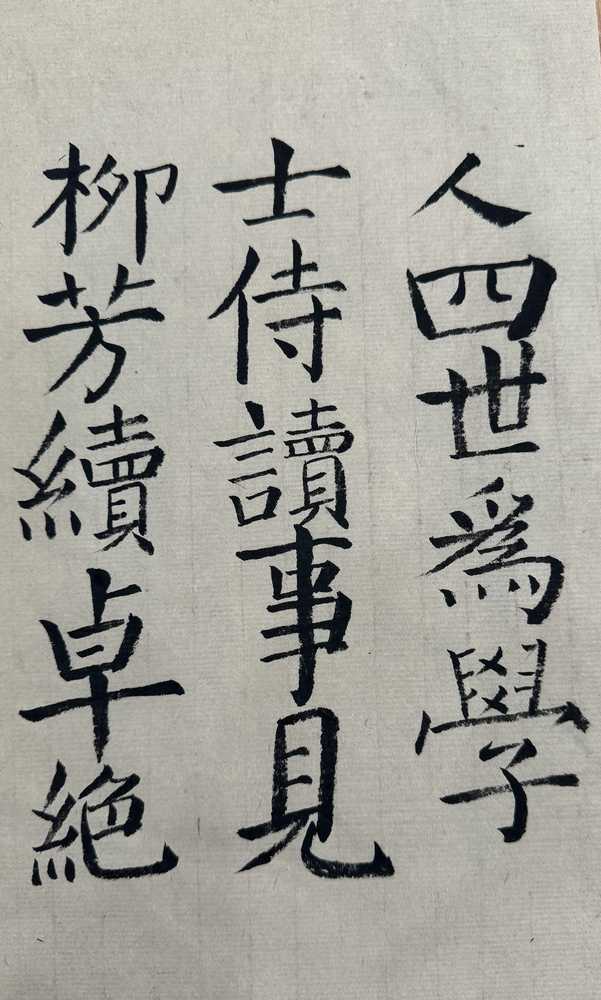 人四世為學
士侍讀事見
柳芳續卓絕